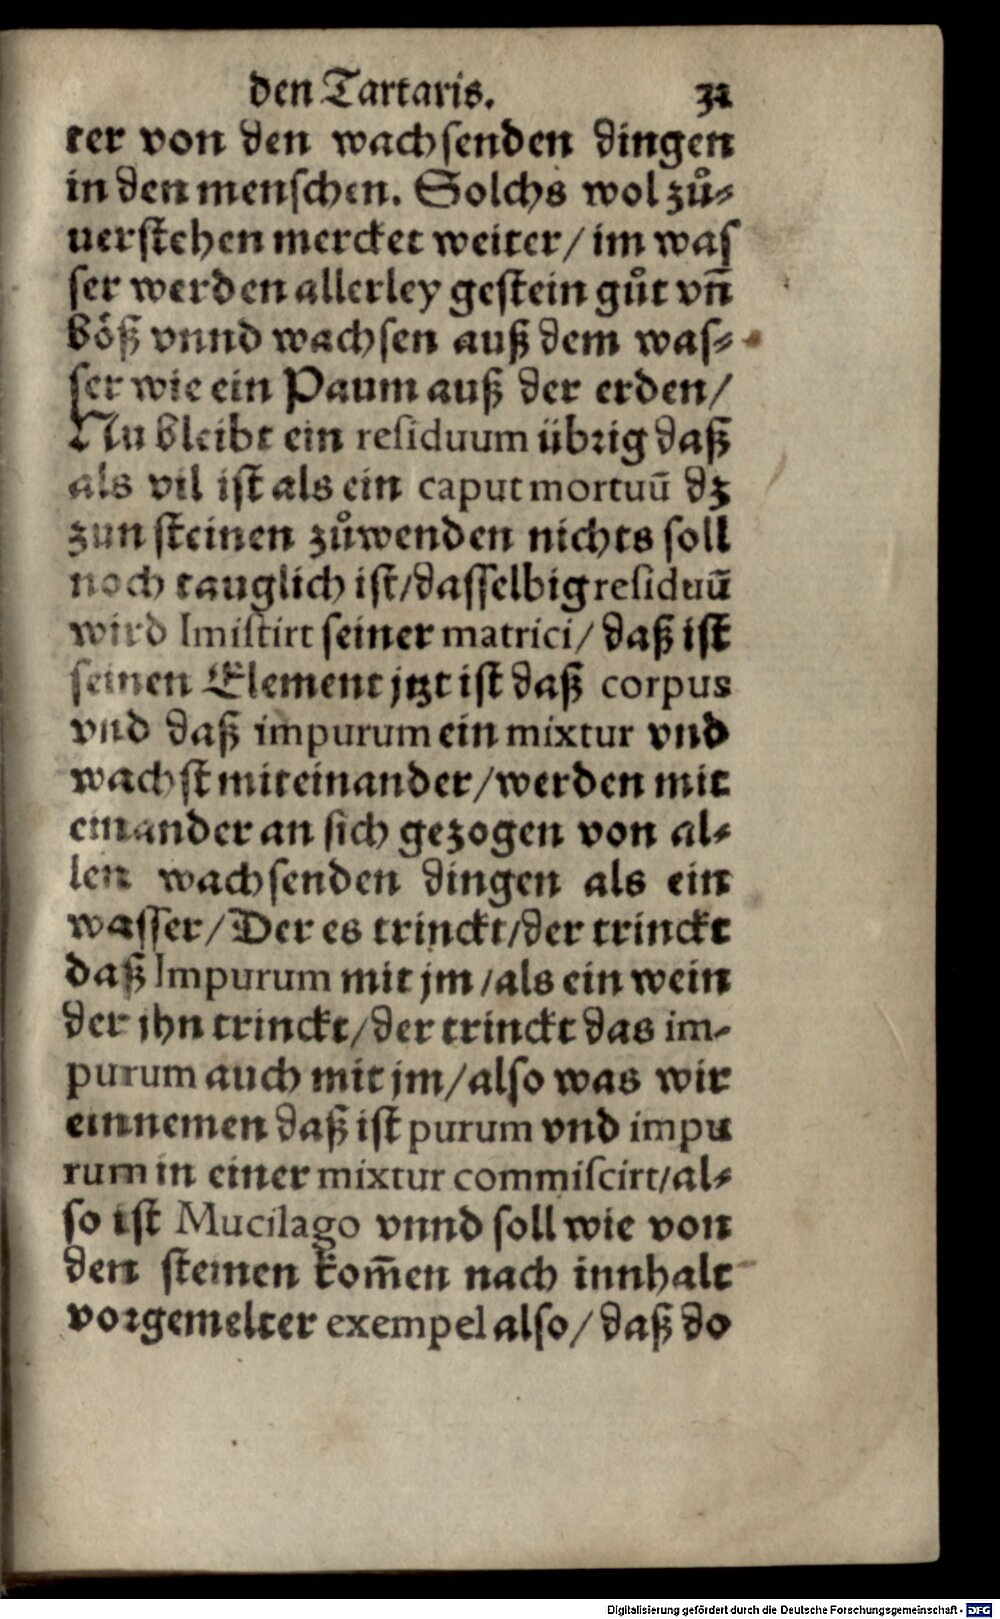 den Tartaris. 32
ter von den wachsenden dingen
in den menschen. Solchs wol zů⸗
uerstehen mercket weiter/ im was
ser werden allerley gestein gůt vñ
böß vnnd wachsen auß dem was⸗
ser wie ein Paum auß der erden/
Nu bleibt ein residuum übrig daß
als vil ist als ein caput mortuū dz
zun steinen zůwenden nichts soll
noch tauglich ist/dasselbig residuū
wird Imistirt seiner matrici/ daß ist
seinen Element jtzt ist daß corpus
vnd daß impurum ein mixtur vnd
wachst miteinander/werden mit
einander an sich gezogen von al⸗
len wachsenden dingen als ein
wasser/Der es trinckt/der trinckt
daß Impurum mit jm/als ein wein
der jhn trinckt/der trinckt das im-
purum auch mit jm/also was wir
einnemen daß ist purum vnd impu
rum in einer mixtur commiscirt/al⸗
so ist Mucilago vnnd soll wie von
den steinen kom̄en nach innhalt
vorgemelter exempel also/ daß do
Digitalisierung gefördert durch die Deutsche Forschungsgemeinschaft - DFG